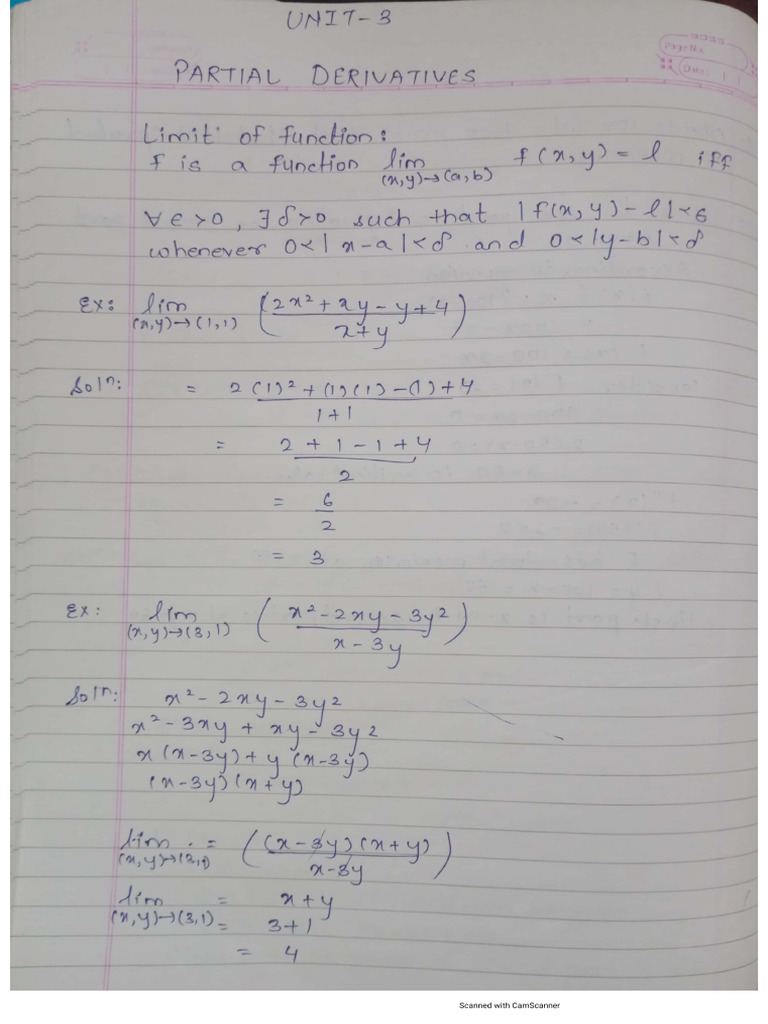 UNIT-3
Page No.
Date: | |
PARTIAL DERIVATIVES
Limit of function:
f is a function lim f(x,y) = l iff
(x,y)→(a,b)
∀ϵ>0, ∃δ>0 such that |f(x,y)-l|<ϵ
whenever 0<|x-a|<δ and 0<|y-b|<δ
Ex: lim (2x²+xy-y+4)
(x,y)→(1,1) x+y
Solⁿ: = 2(1)²+(1)(1)-(1)+4
1+1
= 2+1-1+4
2
= 6
2
= 3
Ex: lim (x²-2xy-3y²)
(x,y)→(3,1) x-3y
Solⁿ: x²-2xy-3y²
x²-3xy+xy-3y²
x(x-3y)+y(x-3y)
(x-3y)(x+y)
lim = ((x-3y)(x+y))
(x,y)→(3,1) x-3y
lim = x+y
(x,y)→(3,1) = 3+1
= 4
Scanned with CamScanner